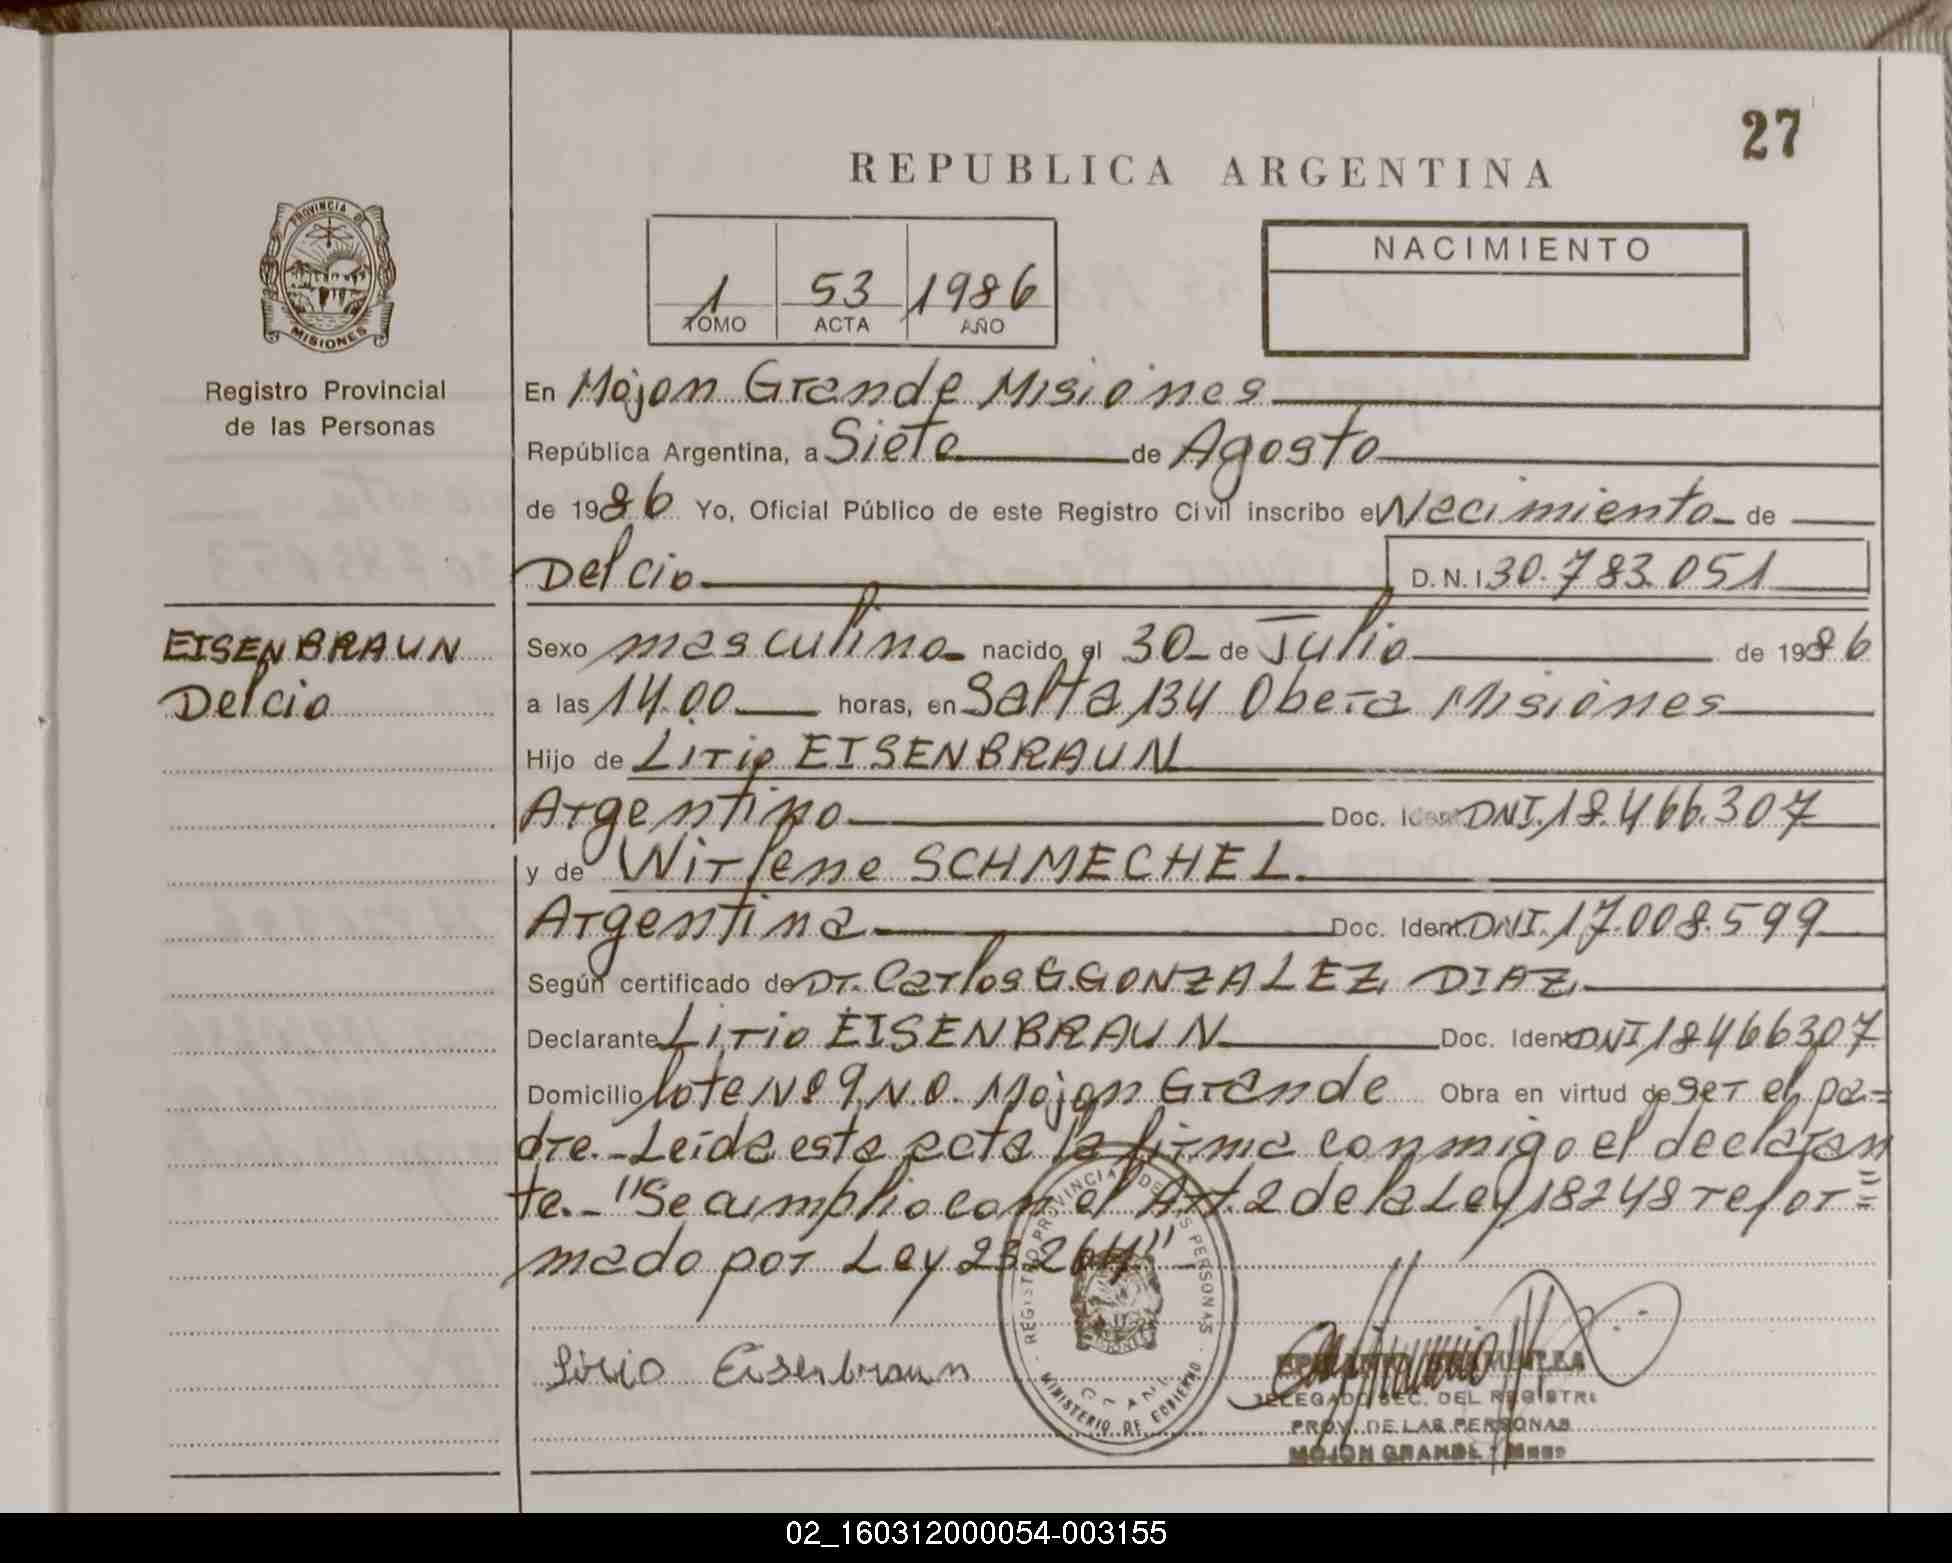 27
REPUBLICA ARGENTINA
PROVINCIA DE
MISIONES
Registro Provincial
de las Personas
1 53 1986
TOMO ACTA AÑO
NACIMIENTO
En Mojon Grande Misiones
República Argentina, a Siete de Agosto
de 1986 Yo, Oficial Público de este Registro Civil inscribo el Nacimiento de
Delcio D.N.I. 30.783.051
EISENBRAUN
Delcio
Sexo masculino nacido el 30 de Julio de 1986
a las 14.00 horas, en Salta 134 Obera Misiones
Hijo de Lirio EISENBRAUN
Argentino Doc. Ident. DNI.18.466.307
y de Wirlene SCHMECHEL
Argentina Doc. Ident. DNI.17.008.599
Según certificado de Dr. Carlos G. GONZALEZ DIAZ
Declarante Lirio EISENBRAUN Doc. Ident. DNI 18466307
Domicilio lote Nº 9 N.O. Mojon Grande Obra en virtud de ser el pa=
dre.- Leida esta acta la firma conmigo el declaran
te.- "Se cumplio con el Art. 2 de la Ley 18248 refor=
mado por Ley 23264"
REGISTRO PROVINCIAL DE LAS PERSONAS
MINISTERIO DE GOBIERNO
Lirio Eisenbraun
DELEGADO SEC. DEL REGISTRO
PROV. DE LAS PERSONAS
MOJON GRANDE - Mnes
02_160312000054-003155